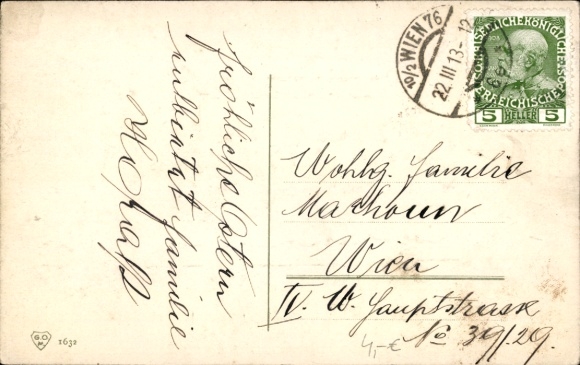 fröhliche Ostern
entbietet familie
Wohlg. familie
Machoun
Wien
IV. W. Hauptstrasse
No 39/29.
10/2 WIEN 76
22. III. 13
KAISERLICHE KÖNIGLICHE
ÖSTERREICHISCHE
5 HELLER 5
G.O.M.
1632
4,-€